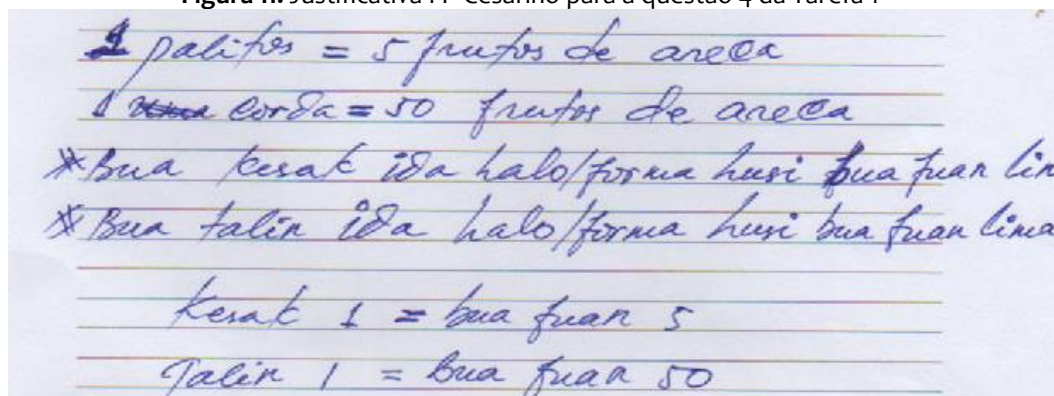 Figura 11. Justificativa Pr Cesarinho para a questão 4 da Tarefa 1
1 palitos = 5 frutos de areca
1 corda = 50 frutos de areca
*Bua kesak ida halo/forma husi bua fuan lim
*Bua talin ida halo/forma husi bua fuan lima
Kesak 1 = bua fuan 5
Talin 1 = bua fuan 50